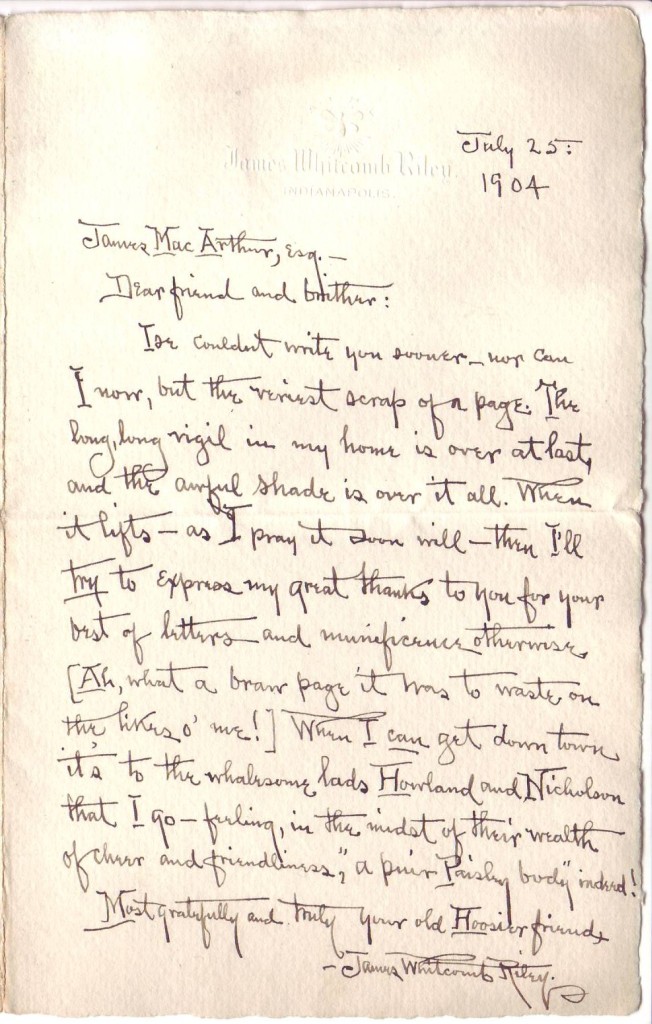 James Whitcomb Riley.
INDIANAPOLIS.
July 25:
1904
James Mac Arthur, Esq. —
Dear friend and brither:
I couldn't write you sooner — nor can
I now, but the veriest scrap of a page. The
long, long vigil in my home is over at last,
and the awful shade is over it all. When
it lifts — as I pray it soon will — then I'll
try to express my great thanks to you for your
best of letters and munificence otherwise.
[Ah, what a braw page it was to waste on
the likes o' me!] When I can get down town
it's to the whalesome lads Howland and Nicholson
that I go — feeling, in the midst of their wealth
of cheer and friendliness, "a puir Paisley body" indeed!
Most gratefully and truly your old Hoosier friend,
— James Whitcomb Riley.